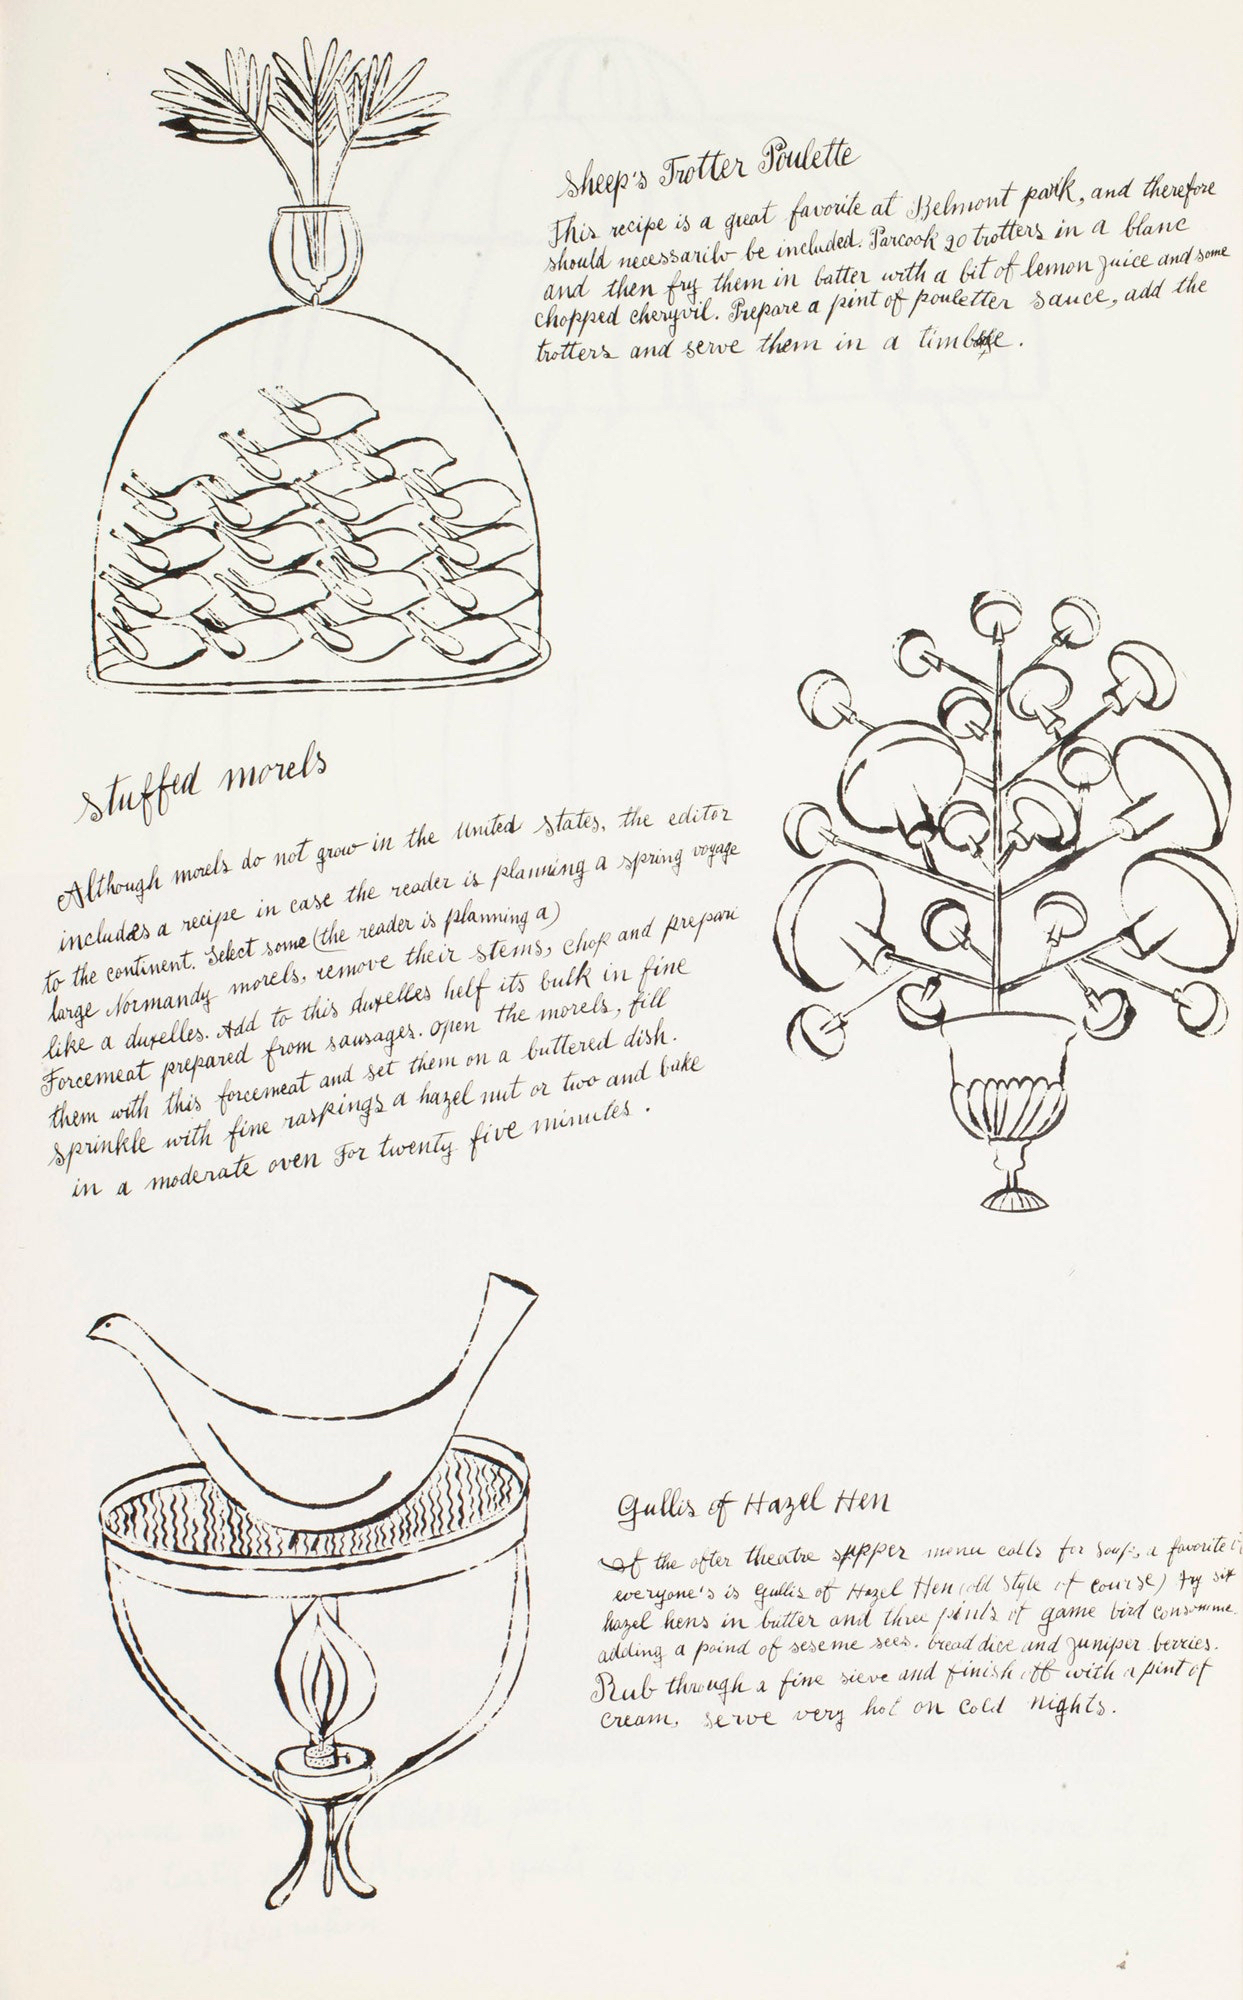 Sheep's Trotter Poulette
This recipe is a great favorite at Belmont park, and therefore
should necessarilv be included. Parcook 20 trotters in a blanc
and then fry them in batter with a bit of lemon juice and some
chopped cheryvil. Prepare a pint of pouletter sauce, add the
trotters and serve them in a timbale.
Stuffed morels
Although morels do not grow in the United States, the editor
includes a recipe in case the reader is planning a spring voyage
to the continent. Select some (the reader is planning a)
large Normandy morels, remove their stems, chop and prepari
like a duxelles. Add to this duxelles helf its bulk in fine
Forcemeat prepared from sausages. open the morels, fill
them with this forcemeat and set them on a buttered dish.
Sprinkle with fine raspings a hazel nut or two and bake
in a moderate oven for twenty five minutes.
Gullis of Hazel Hen
If the after theatre supper menu calls for soup, a favorite
everyone's is Gullis of Hazel Hen (old style of course) Fry six
hazel hens in butter and three pints of game bird consomme.
adding a poind of seseme sees. bread dice and juniper berries.
Rub through a fine sieve and finish off with a pint of
cream, serve very hot on cold nights.